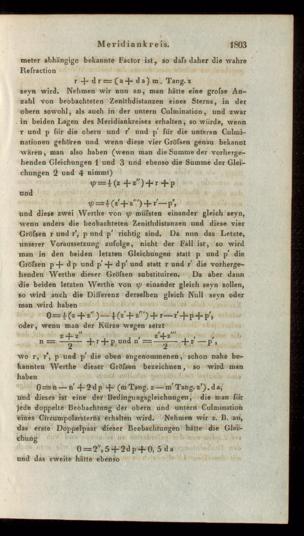 Meridiankreis. 1803
meter abhängige bekannte Factor ist, so daſs daher die wahre
Refraction
r + dr = (a + da) m. Tang. z
seyn wird. Nehmen wir nun an, man hätte eine groſse An-
zahl von beobachteten Zenithdistanzen eines Sterns, in der
obern sowohl, als auch in der untern Culmination, und zwar
in beiden Lagen des Meridiankreises erhalten, so würde, wenn
r und p für die obern und r' und p' für die untern Culmi-
nationen gehören und wenn diese vier Gröſsen genau bekannt
wären, man also haben (wenn man die Summe der vorherge-
henden Gleichungen 1 und 3 und ebenso die Summe der Glei-
chungen 2 und 4 nimmt)
ψ = ½ (z + z'') + r + p
und
ψ = ½ (z' + z''') + r' — p',
und diese zwei Werthe von ψ müſsten einander gleich seyn,
wenn anders die beobachteten Zenithdistanzen und diese vier
Gröſsen r und r', p und p' richtig sind. Da nun das Letzte,
unserer Voraussetzung zufolge, nicht der Fall ist, so wird
man in den beiden letzten Gleichungen statt p und p' die
Gröſsen p + dp und p' + dp' und statt r und r' die vorherge-
henden Werthe dieser Gröſsen substituiren. Da aber dann
die beiden letzten Werthe von ψ einander gleich seyn sollen,
so wird auch die Differenz derselben gleich Null seyn oder
man wird haben
0 = ½ (z + z'') — ½ (z' + z''') + r — r' + p + p',
oder, wenn man der Kürze wegen setzt
n = (z + z'')/2 + r + p und n' = (z' + z''')/2 + r' — p',
wo r, r', p und p' die oben angenommenen, schon nahe be-
kannten Werthe dieser Gröſsen bezeichnen, so wird man
haben
0 = n — n' + 2dp + (m Tang. z — m' Tang. z'). da,
und dieses ist eine der Bedingungsgleichungen, die man für
jede doppelte Beobachtung der obern und untern Culmination
eines Circumpolarsterns erhalten wird. Nehmen wir z. B. an,
das erste Doppelpaar dieser Beobachtungen hätte die Glei-
chung
0 = 2'',5 + 2dp + 0,5 da
und das zweite hätte ebenso